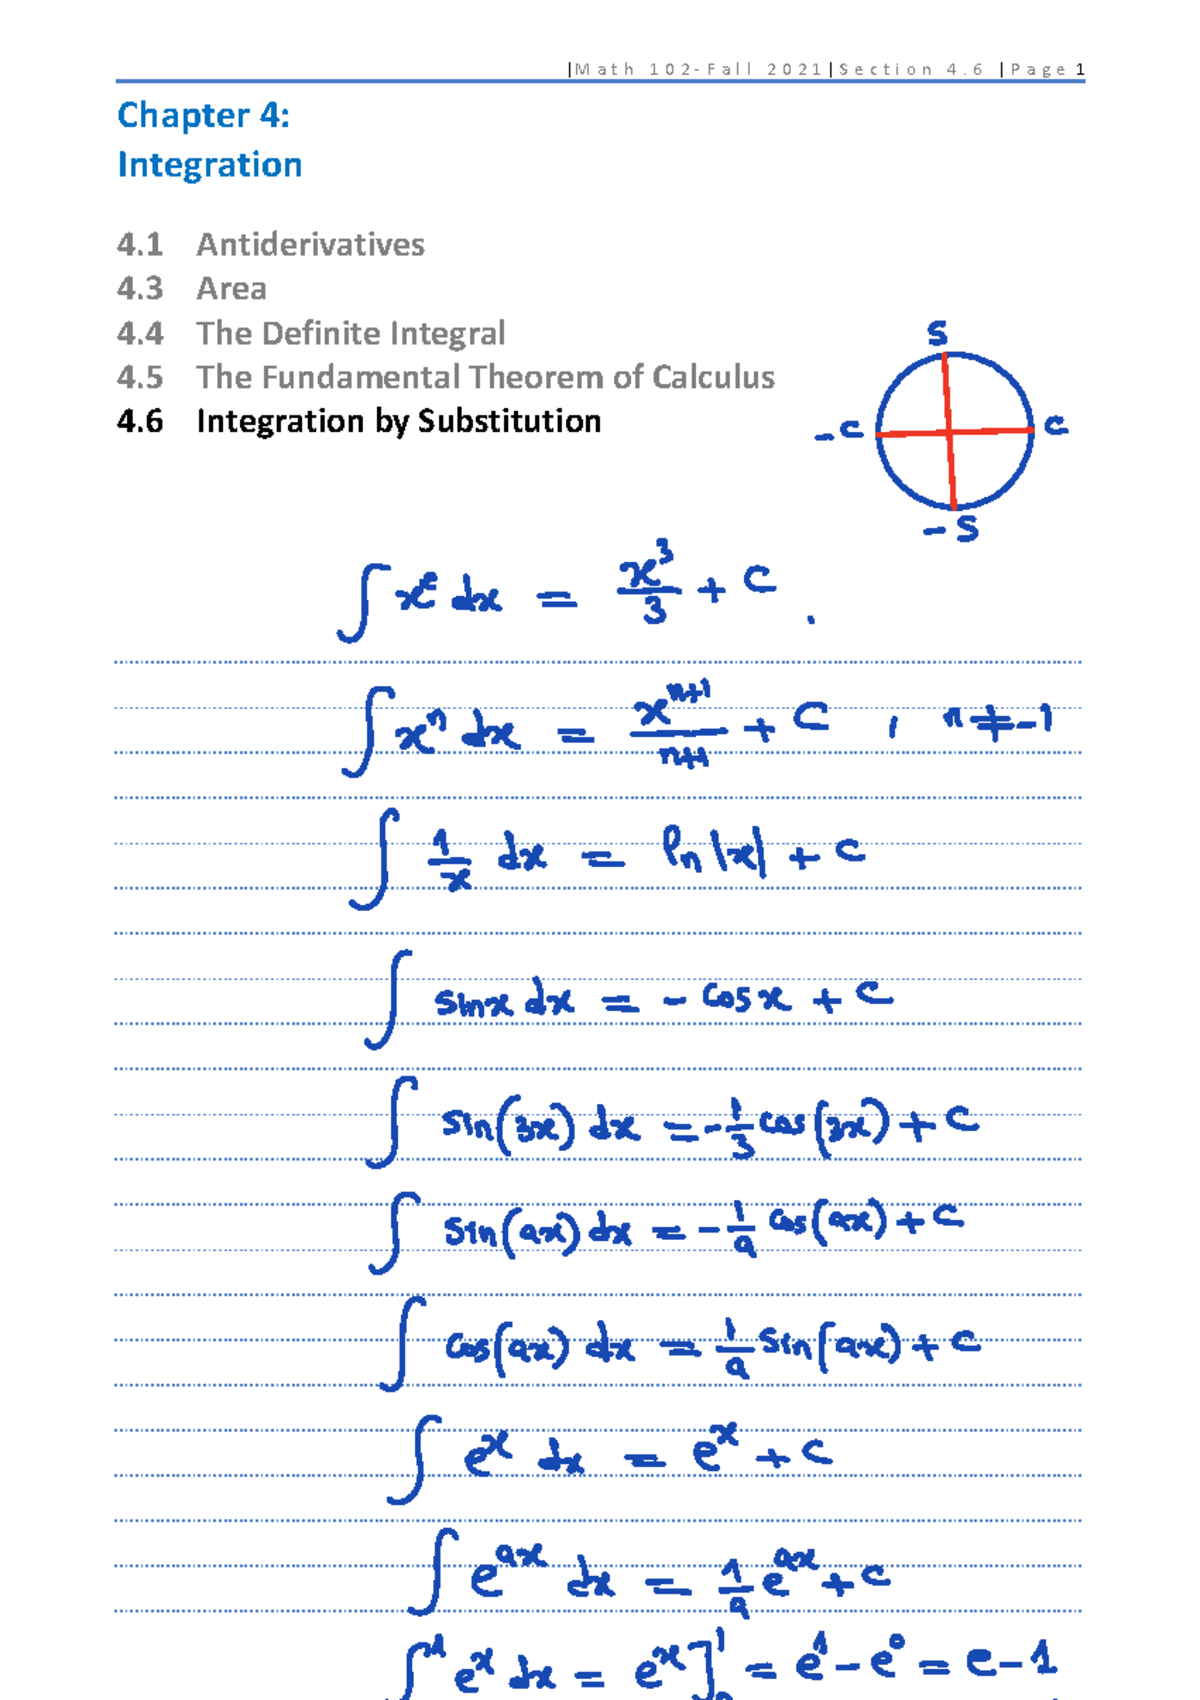 |Math 102-Fall 2021|Section 4.6 |Page 1
Chapter 4:
Integration
4.1 Antiderivatives
4.3 Area
4.4 The Definite Integral
4.5 The Fundamental Theorem of Calculus
4.6 Integration by Substitution
S
-C C
-S
∫ x² dx = x³/3 + C .
∫ xⁿ dx = xⁿ⁺¹/n+1 + C , n ≠ -1
∫ 1/x dx = ln|x| + C
∫ sinx dx = - cosx + C
∫ sin(3x) dx = - 1/3 cos(3x) + C
∫ sin(ax) dx = - 1/a cos(ax) + C
∫ cos(ax) dx = 1/a sin(ax) + C
∫ eˣ dx = eˣ + C
∫ eᵃˣ dx = 1/a eᵃˣ + C
∫¹ eˣ dx = eˣ]₀¹ = e¹ - e⁰ = e - 1